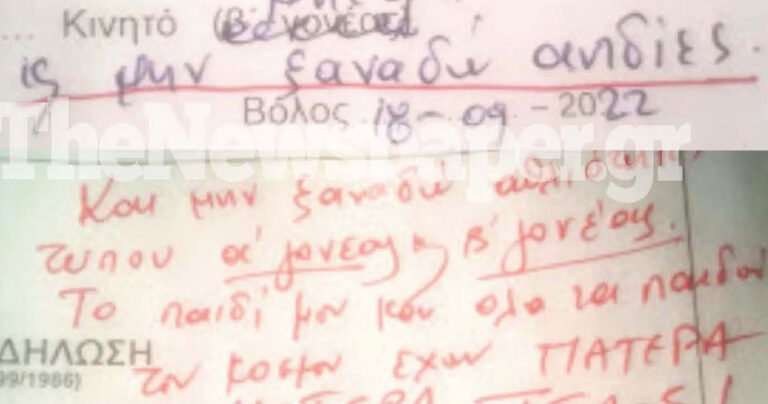 ... Κινητό (β' γονέας)
ις μην ξαναδώ αηδίες.
Βόλος 18-09-2022
TheNewspaper.gr
Και μην ξαναδώ αθλιότητ
τυπου α' γονεας & β' γονέας.
Το παιδί μου και ολα τα παιδια
ΔΗΛΩΣΗ του κοσμου εχουν ΠΑΤΕΡΑ
99/1986)